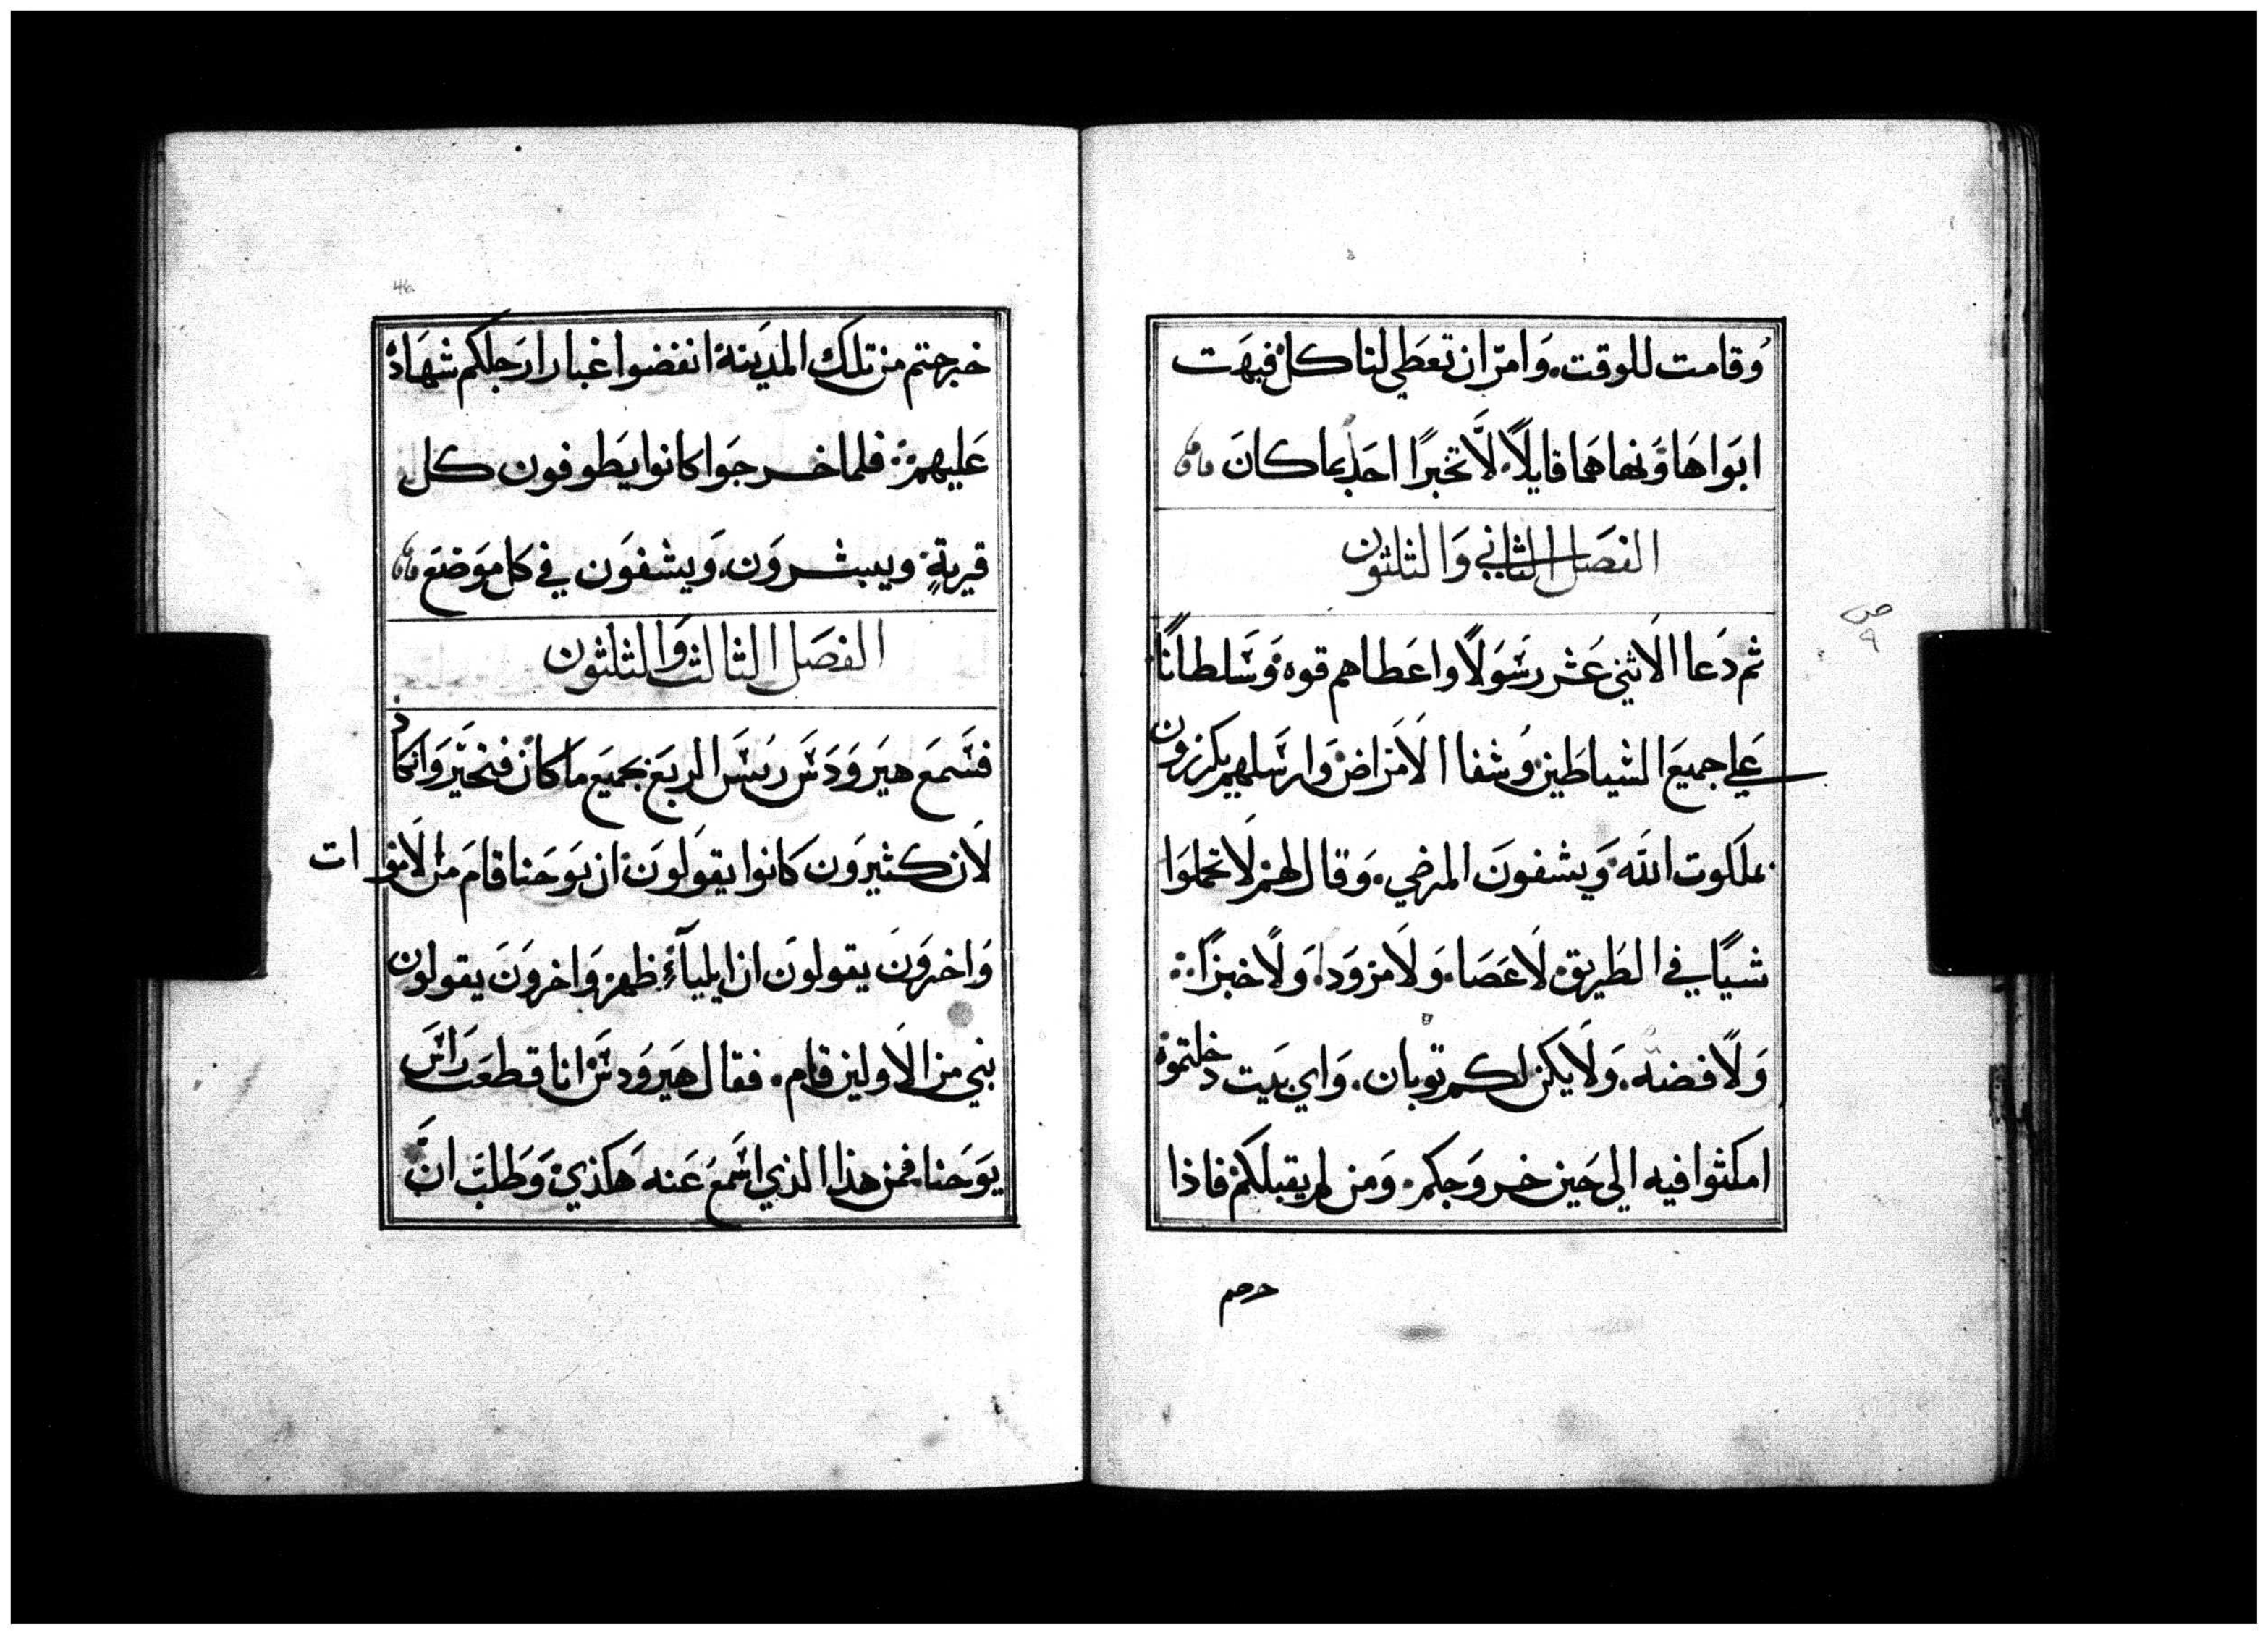 وَقامت للوقت. وَامرّ ان تعَطي لنا كل فبهَت
ابَواهَا وَنهاهَما قايلاً لاَّ تخبرًا احَد بما كانَ
الفصَل الثاني وَالثلثون
ثم دَعا الاَثني عَشر رسَوَلاً واعَطاهم قوه وَسَلطانًا
عَلي جميعَ الشياطَين وُشفا الاَمَراض وَارسَلهم يكرزون
بملكوت اللَه وَيشفونَ المرضي. وَقال لهم لاَ تحملوَا
شياً في الطَريق لاَ عَصَا. وَلاَ مزوَدا. وَلاً خبزًا:.
وَلاً فضه. وَلاَ يكن لكم ثوبان. وَاي بيَت دخلتموه
امكثوا فيه الي حَين خروَجكم. وَمن لم يقبلكم فاذا
خرجتم
خرجتم من تلك المدَينة انفضوا غبار ارَجلكم شهَادة
عَليهم: فلما خرجوَا كانوا يطَوفون كل
قريةٍ ويبشروَن. وَيشفوَن في كل موَضعَ
الفصَل الثالث وَالثلثون
فسَمعَ هيروَدسَ ريسَ الربعَ بجميعَ مَا كان فتحَير وَانكاد
لاَن كثيروَن كانوا يقوَلوَن ان يوَحَنا قامَ من الاَموات
وَاخروَنَ يقولونَ ان ايلياَءِ ظهر وَاخروَنَ يقولون
نبي من الاَولين قام. فقال هَيروَدسَ انا قطعَت رَاسَ
يوَحَنا فمن هذا الذي اسَمعَ عَنه هَكذي وَطَلبَ انَّ
46
ص
٩